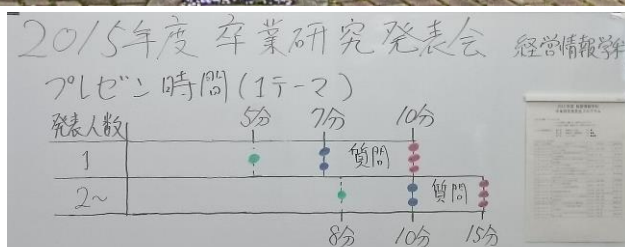 2015年度 卒業研究発表会 経営情報学科
プレゼン時間(1テーマ)
発表人数 5分 7分 10分
1 質問
2~ 質問
8分 10分 15分